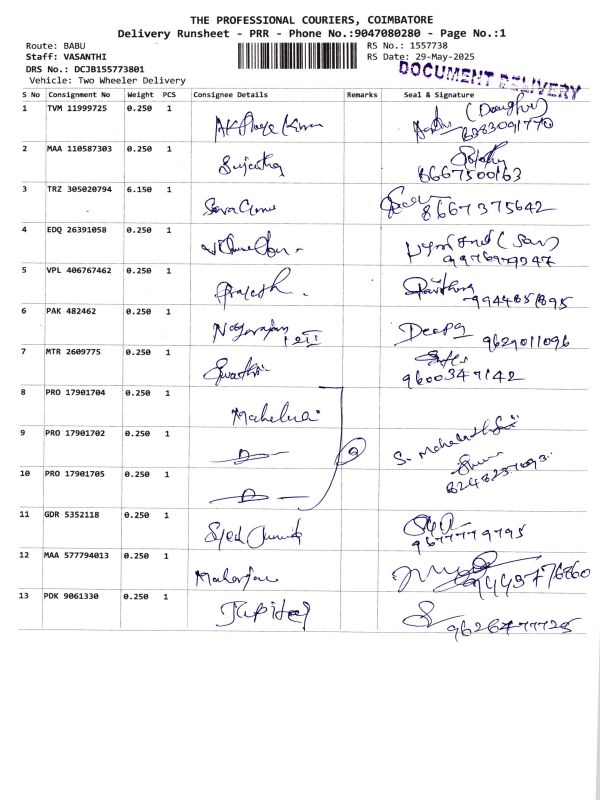 THE PROFESSIONAL COURIERS, COIMBATORE
Delivery Runsheet - PRR - Phone No.:9047080280 - Page No.:1
Route: BABU
RS No.: 1557738
Staff: VASANTHI
RS Date: 29-May-2025
DRS No.: DCJB155773801
DOCUMENT DELIVERY
Vehicle: Two Wheeler Delivery
S No Consignment No Weight PCS Consignee Details Remarks Seal & Signature
1 TVM 11999725 0.250 1 (Daughter)
8283091770
2 MAA 110587303 0.250 1 Sujatha
8667500163
3 TRZ 305020794 6.150 1
8667375642
4 EDQ 26391058 0.250 1 (Son)
5 VPL 406767462 0.250 1 Prajesh
6 PAK 482462 0.250 1 Nagarajan Deepa 9629011096
7 MTR 2609775 0.250 1 Swathi
9600347142
8 PRO 17901704 0.250 1
9 PRO 17901702 0.250 1
10 PRO 17901705 0.250 1
11 GDR 5352118 0.250 1 Syed
9677779795
12 MAA 577794013 0.250 1
13 PDK 9061330 0.250 1 Jupiter
9626477725